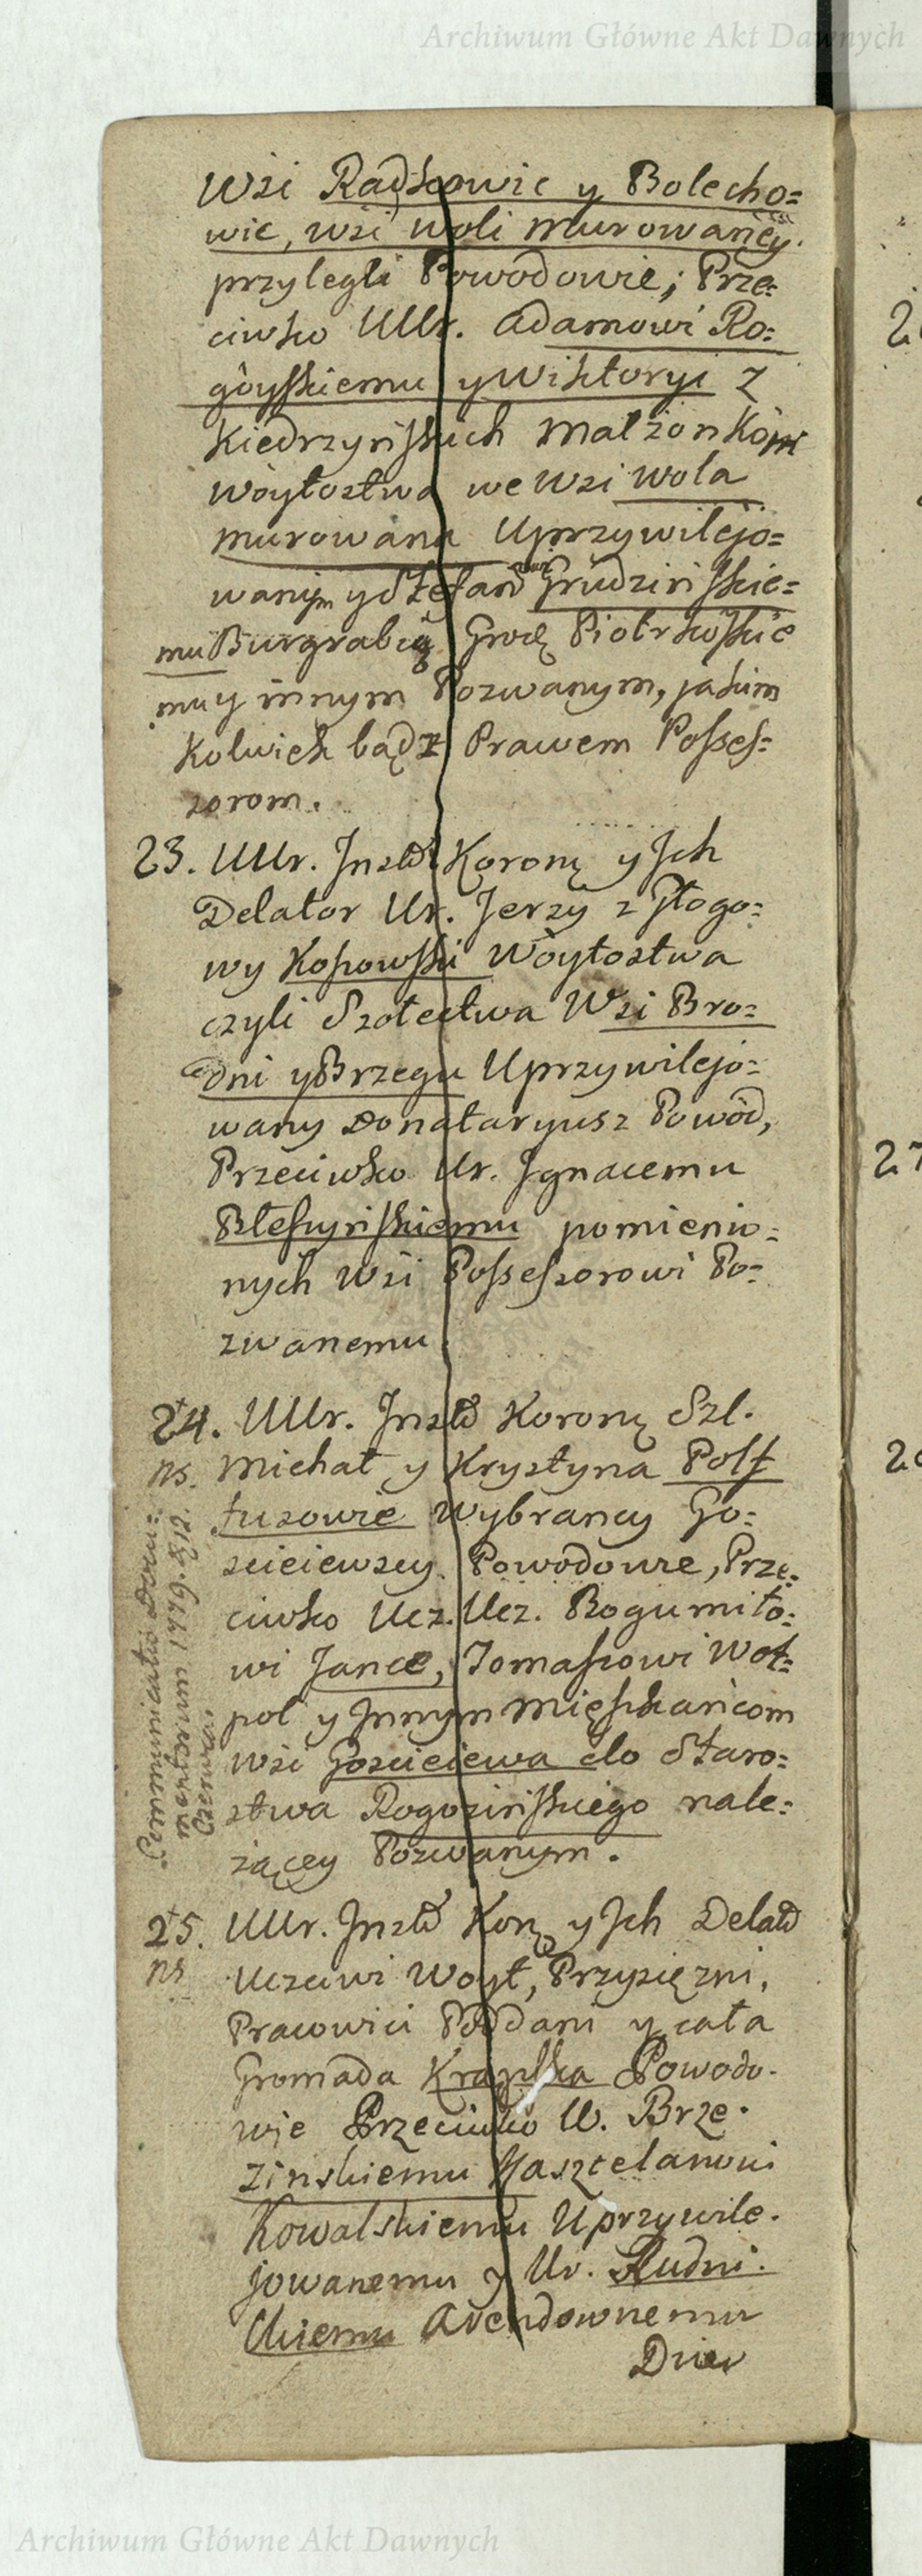 Archiwum Główne Akt Dawnych
Wsi Radkowic y Bolecho=
wic, wsi Woli Murowaney
przylegli Powodowie; Prze=
ciwko UUr. Adamowi Ro=
goyskiemu y Wiktoryi z
Kiedrzyńskich Małżonkom
Woytostwa we Wsi Wola
Murowana Uprzywilejo=
wanym y Stefanowi Grudzińskie=
mu Burgrabią Grod. Piotrkoskie
mu y innym Pozwanym, jakim
Kolwiek bądz Prawem Posses=
zorom.
23. UUr. Inst. Koronn. y Ich
Delator Ur. Jerzy z Głogo=
wy Kossowski Woytostwa
czyli Szołectwa Wsi Bro=
dni y Brzegu Uprzywilejo=
wany Donataryusz Powód,
Przeciwko Ur. Ignacemu
Błeszyńskiemu pomienio=
nych Wsi Possessorowi Po=
zwanemu
24. UUr. Inst. Koronn. Szl.
ns. Michał y Krystyna Polt
tuzowie Wybrancy Go=
scieiewscy Powodowie, Prze=
ciwko Ucz. Ucz. Bogumiło=
wi Jance, Tomaszowi Woł=
pol y Innym Mięszkańcom
Wsi Goscieiewa do Staro=
stwa Rogozińskiego nale=
żącey Pozwanym.
Communicatio Docu=
mentorum 1779. d. 12.
Czerwca.
25. UUr. Inst. Kor. y Ich Delat.
ns Uczciwi Woyt, Przysiężni,
Pracowici Poddani y cała
Gromada Krapska Powodo-
wie Przeciwko W. Brze-
zinskiemu Kasztelanowi
Kowalskiemu Uprzywile-
jowanemu y Ur. Rudni-
ckiemu Arendownemu
Dnia
Archiwum Główne Akt Dawnych